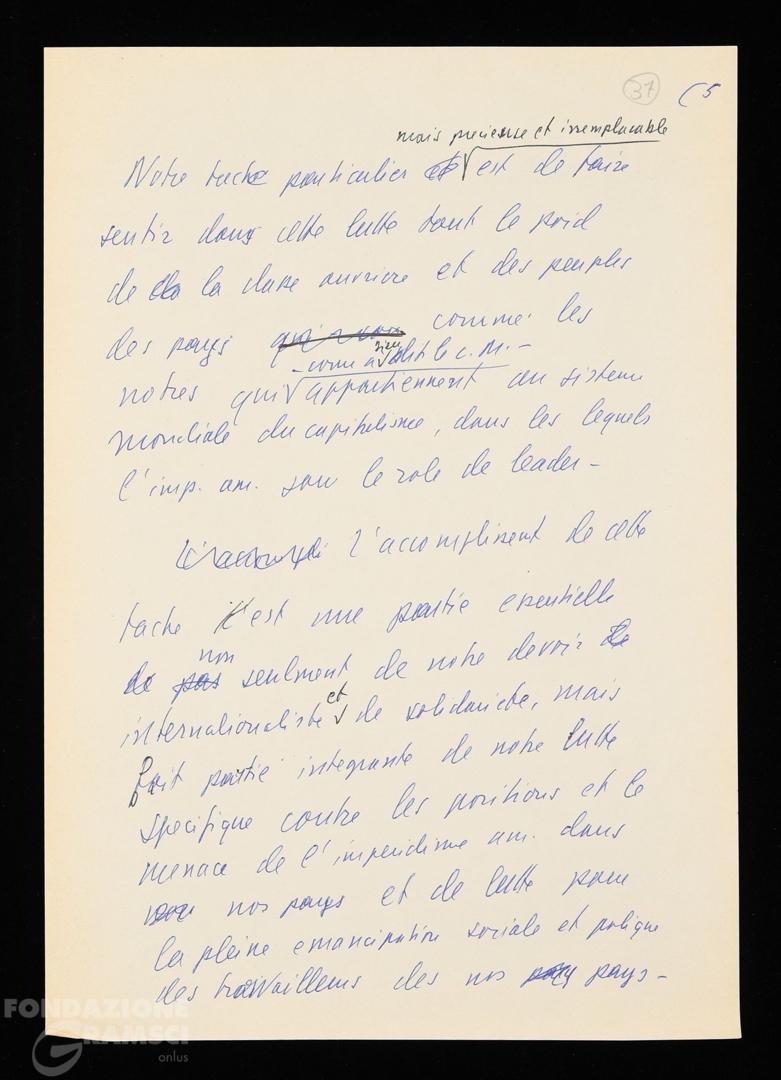 37 (5
mais precieuse et irremplacable
Notre tache particulier est de faire
sentir dans cette lutte tout le poid
de la classe ouvriere et des peuples
des pays comme les
- come a bien dit le c. M. -
notres qui appartiennent au sisteme
mondiale du capitalisme, dans les lequels
l'imp. am. joue le role de leader -
l'accompliment de cette
tache est une partie essentielle
non
seulment de notre devoir
internationaliste et de solidariete, mais
fait partie integrante de notre lutte
specifique contre les positions et le
menace de l'imperialisme am. dans
nos pays et de lutte pour
la pleine emancipation sociale et politique
des travailleurs des nos pays -
FONDAZIONE
GRAMSCI
onlus